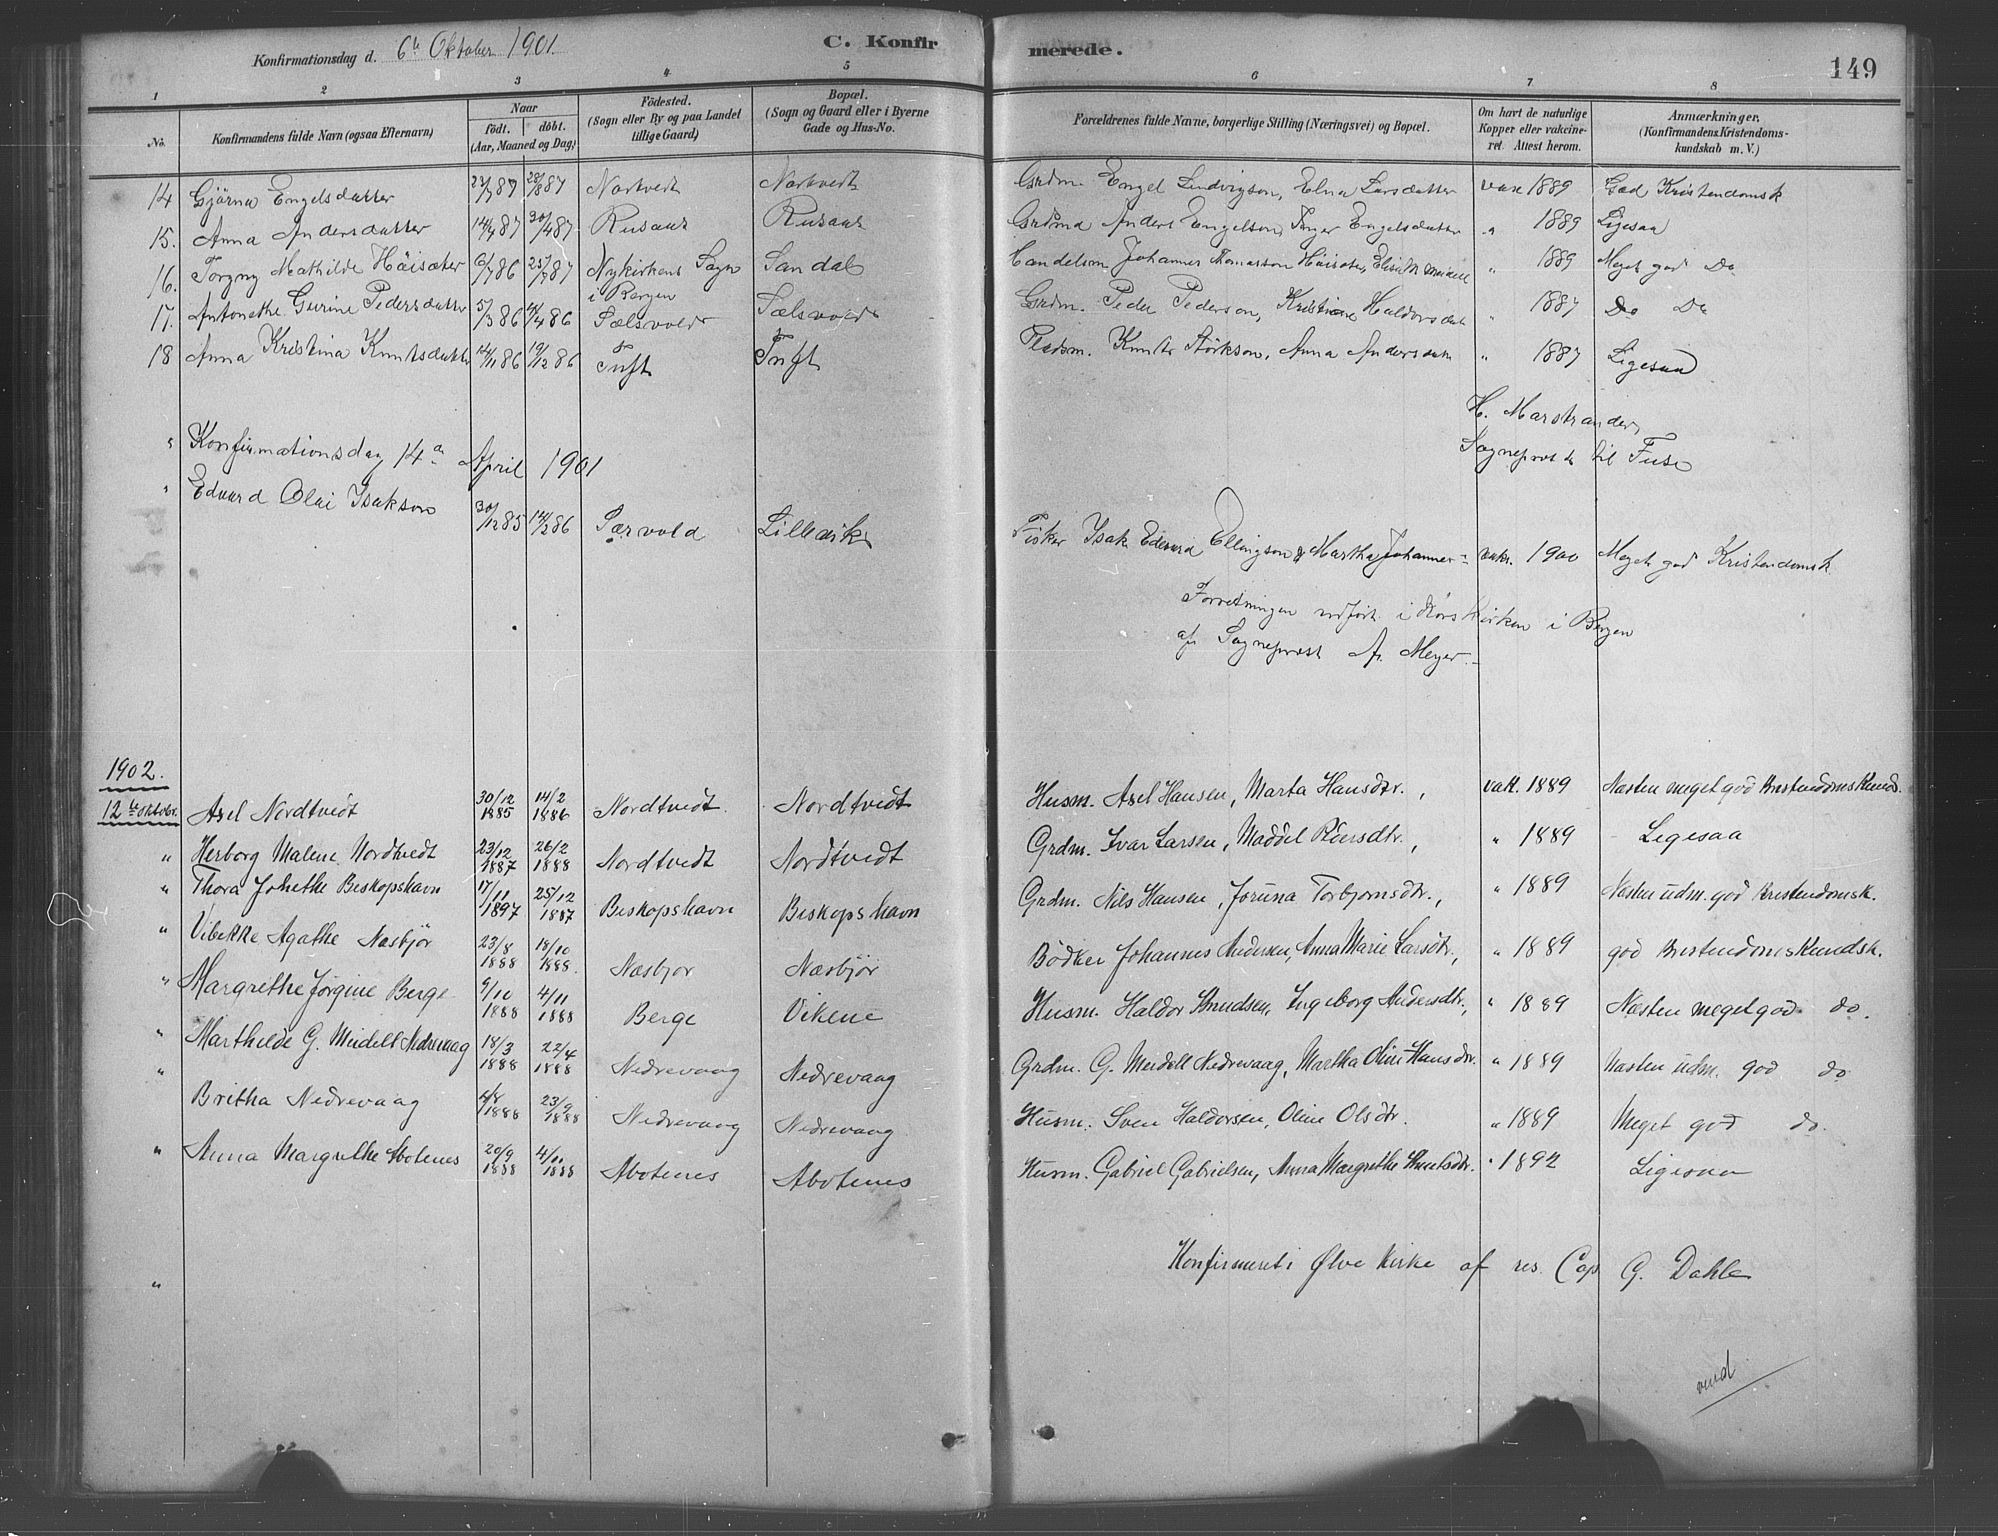 Konfirmationsdag d. 6te Oktober 1901. C. Konfirmerede. 149
1 2 3 4 5 6 7 8
No. Konfirmandens fulde Navn (ogsaa Efternavn) Naar födt. döbt. (Aar, Maaned og Dag) Födested. (Sogn eller By og paa Landet tillige Gaard) Bopæl. (Sogn og Gaard eller i Byerne Gade og Hus-No. Forældrenes fulde Navne, borgerlige Stilling (Næringsvei) og Bopæl. Om havt de naturlige Kopper eller vakcineret. Attest herom. Anmærkninger. (Konfirmandens Kristendomskundskab m. V.)
14 Gjörna Engelsdatter 87 28/8 87 Nortvedt Nortvedt Grdm. Engel Ludvigson, Elna Larsdatter vax 1889 God Kristendomsk
15. Anna Andersdatter 87 30/4 87 Rusaas Rusaas Grdma Anders Engelson, Inger Engelsdatter " 1889 Ligesaa
16. Torgny Mathilde Höisæter 6/7 86 87 Nykirkens Sogn i Bergen Sandal Handelsm Johannes Thomasson Höisæter, Meidell " 1889 Meget god Do
17. Antonethe Gurine Pedersdatter 5/3 86 4/4 86 Sælsvold Sælsvold Grdm. Peder Pederson, Kristiane Haldorsdat " 1887 Do Do
18 Anna Kristina Knutsdatter 14/11 86 19/12 86 Tuft Tuft Pladsm. Knut Störkson, Anna Andersdatr " 1887 Ligesaa
H. Marstrander,
Sogneprest til Fuse
" Konfirmationsdag 14de April 1901
" Edvard Olai Isakson 30/12 85 14/2 86 Særvold Lillevik Fisker Isak Edvard Ellingson og Martha Johanne vakc. 1900 Meget god Kristendomsk.
Forretningen udført i Korskirken i Bergen
af Sogneprest A. Meyer.
1902.
12te Oktobr. Axel Nordtvedt 30/12 1885 14/2 1886 Nordtvedt. Nordtvedt Husm. Axel Hansen, Marta Hansdtr., vakc. 1889 Næsten meget god KristendomsKunds.
" Herborg Malene Nordtvedt 23/12 1887 26/2 1888 Nordtvedt Nordtvedt Grdm. Ivar Larsen, Maddel Röersdtr., " 1889 Ligesaa
" Thora Johethe Biskopshavn 17/11 1897 25/12 1887 Biskopshavn Biskopshavn Grdm. Nils Hansen, Joruna Torbjornsdtr., " 1889 Næsten udm. god Kristendomsk.
" Vibekke Agathe Næsbjör 23/8 1888 18/10 1888. Næsbjor Næsbjör Bödker Johannes Andersen, Anna Marie Larsdtr., " 1889 god KristendomsKundsk.
" Margrethe Jörgine Berge 9/10 1888 4/11 1888 Berge Vikene Husm. Haldor Knudsen, Ingeborg Andersdtr., " 1889 Næsten meget god do.
" Marthilde G. Meidell Nedrevaag 18/3 1888 22/4 1888 Nedrevaag Nedrevaag Grdm. G. Meidell Nedrevaag, Martha Oline Hansdtr. " 1889 Næsten udm. god do
" Britha Nedrevaag 4/8 1888 23/9 1888 Nedrevaag Nedrevaag Husm. Sven Haldorsen, Oline Olsdtr. " 1889 Meget god do.
" Anna Margrethe Abotenes 20/9 1888 4/11 1888 Abotenes Abotenes Husm. Gabriel Gabrielsen, Anna Margrethe Knutsdtr. " 1892 Ligesaa
" Konfirmeret i Ølve Kirke af res. Cap G. Dahle
vend